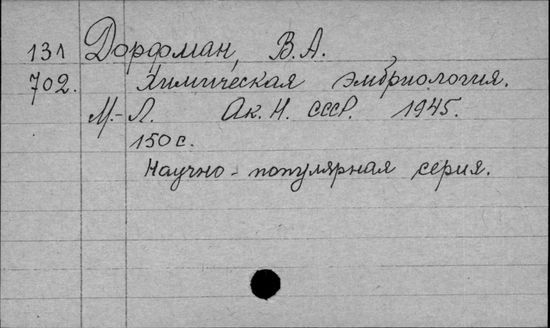 131 Дорфман, В.А.
702. Химическая эмбриология.
М.-Л. Ак. Н. СССР. 1945.
150 с.
Научно-популярная серия.